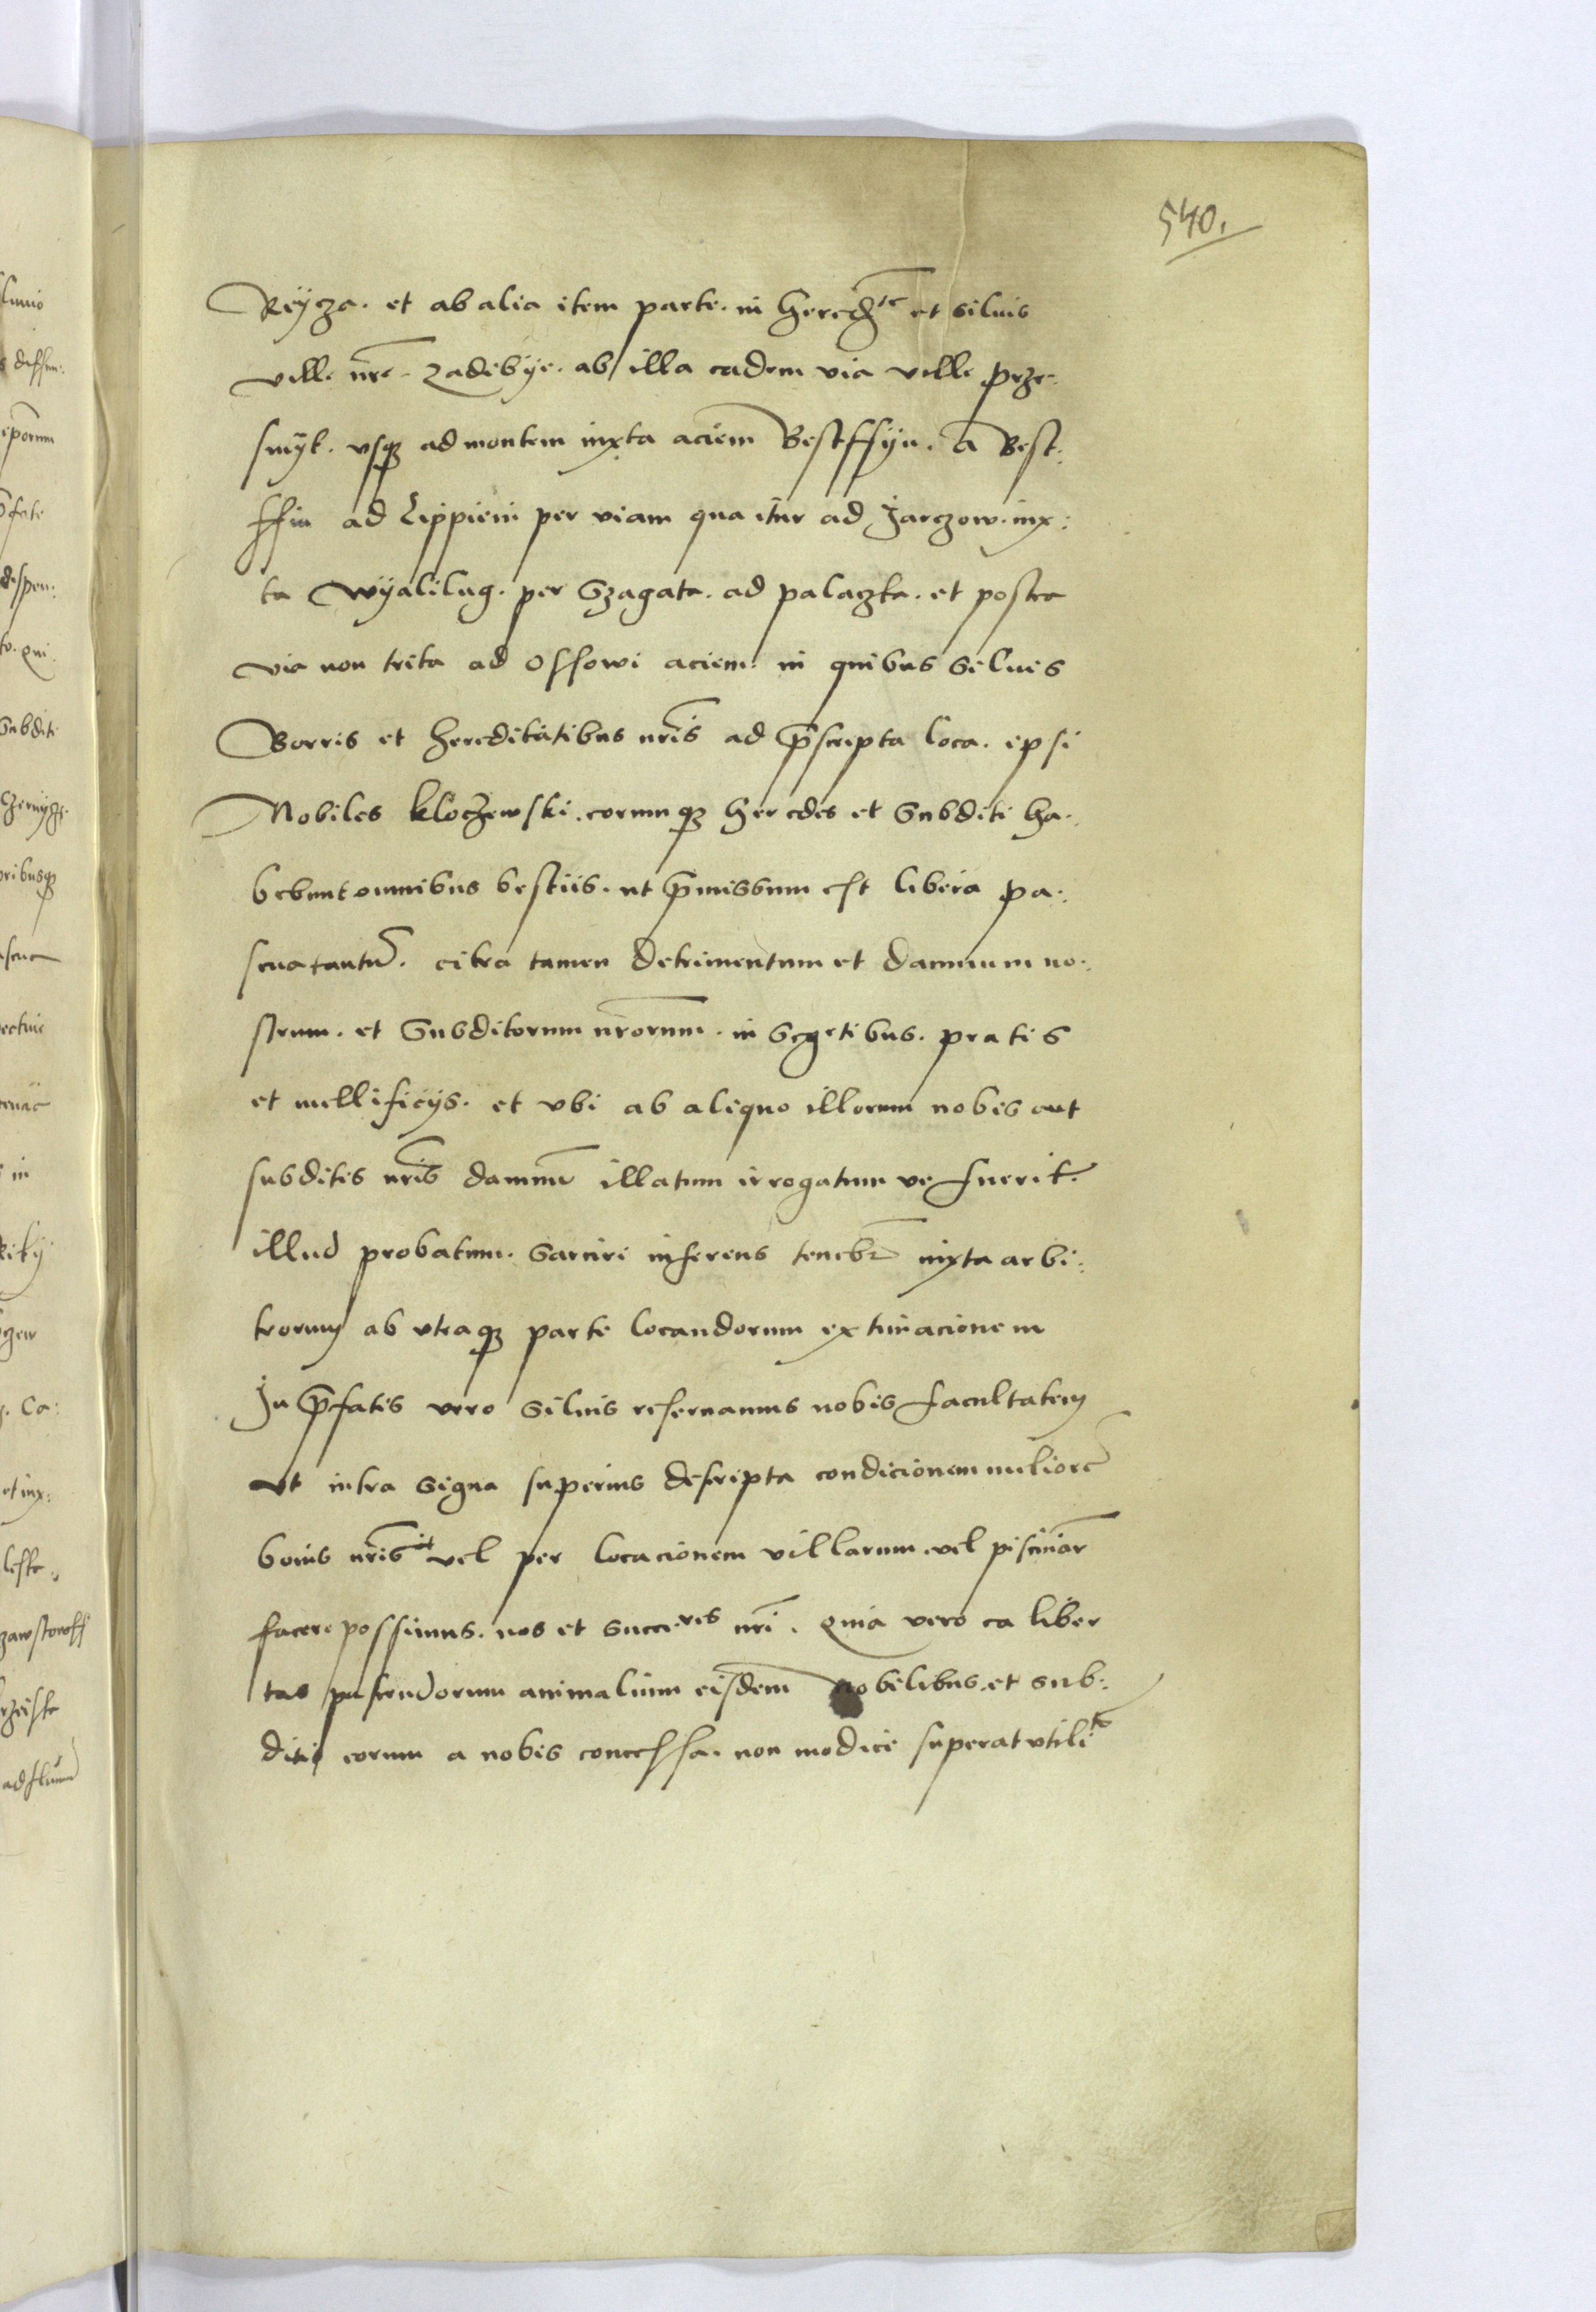 540.
Reÿcza. et ab alia item parte. in heredte et siluis
ville nre. Zadebÿe. ab illa eadem via ville prze:
smÿk. vsq3 ad montem iuxta aciem Bestffÿn. a Best:
ffin ad Lippieni per viam qua itur ad Jarczow. iux:
ta Wÿalilug. per Szagata. ad palaczka. et postea
via non trita ad Ossowi aciem. in quibus siluis
Borris et hereditatibus nris ad pscripta loca. ipsi
Nobiles kloczewski. eorumq3 heredes et subditi ha:
bebunt omnibus bestiis. ut pmissum est libera pa:
scua tantu. citra tamen detrimentum et damnum no:
strum. et Subditorum nrorum. in segetibus. pratis
et mellificÿs. et vbi ab aliquo illorum nobis aut
subditis nris damnu illatum irrogatum ve fuerit.
illud probatum. sarciri inferens teneb iuxta arbi:
trorum ab vtraq3 parte locandorum extimacionem
In pfatis vero siluis reseruamus nobis facultatem
vt intra signa superius descripta condicionem meliore
bonis nris vel per locacionem villarum vel piscinar
facere possimus. nos et succres nri. Quia vero ea liber
tas pascendorum animalium eisdem nobilibus. et sub:
ditis eorum a nobis concessa. non modice superat vtilite